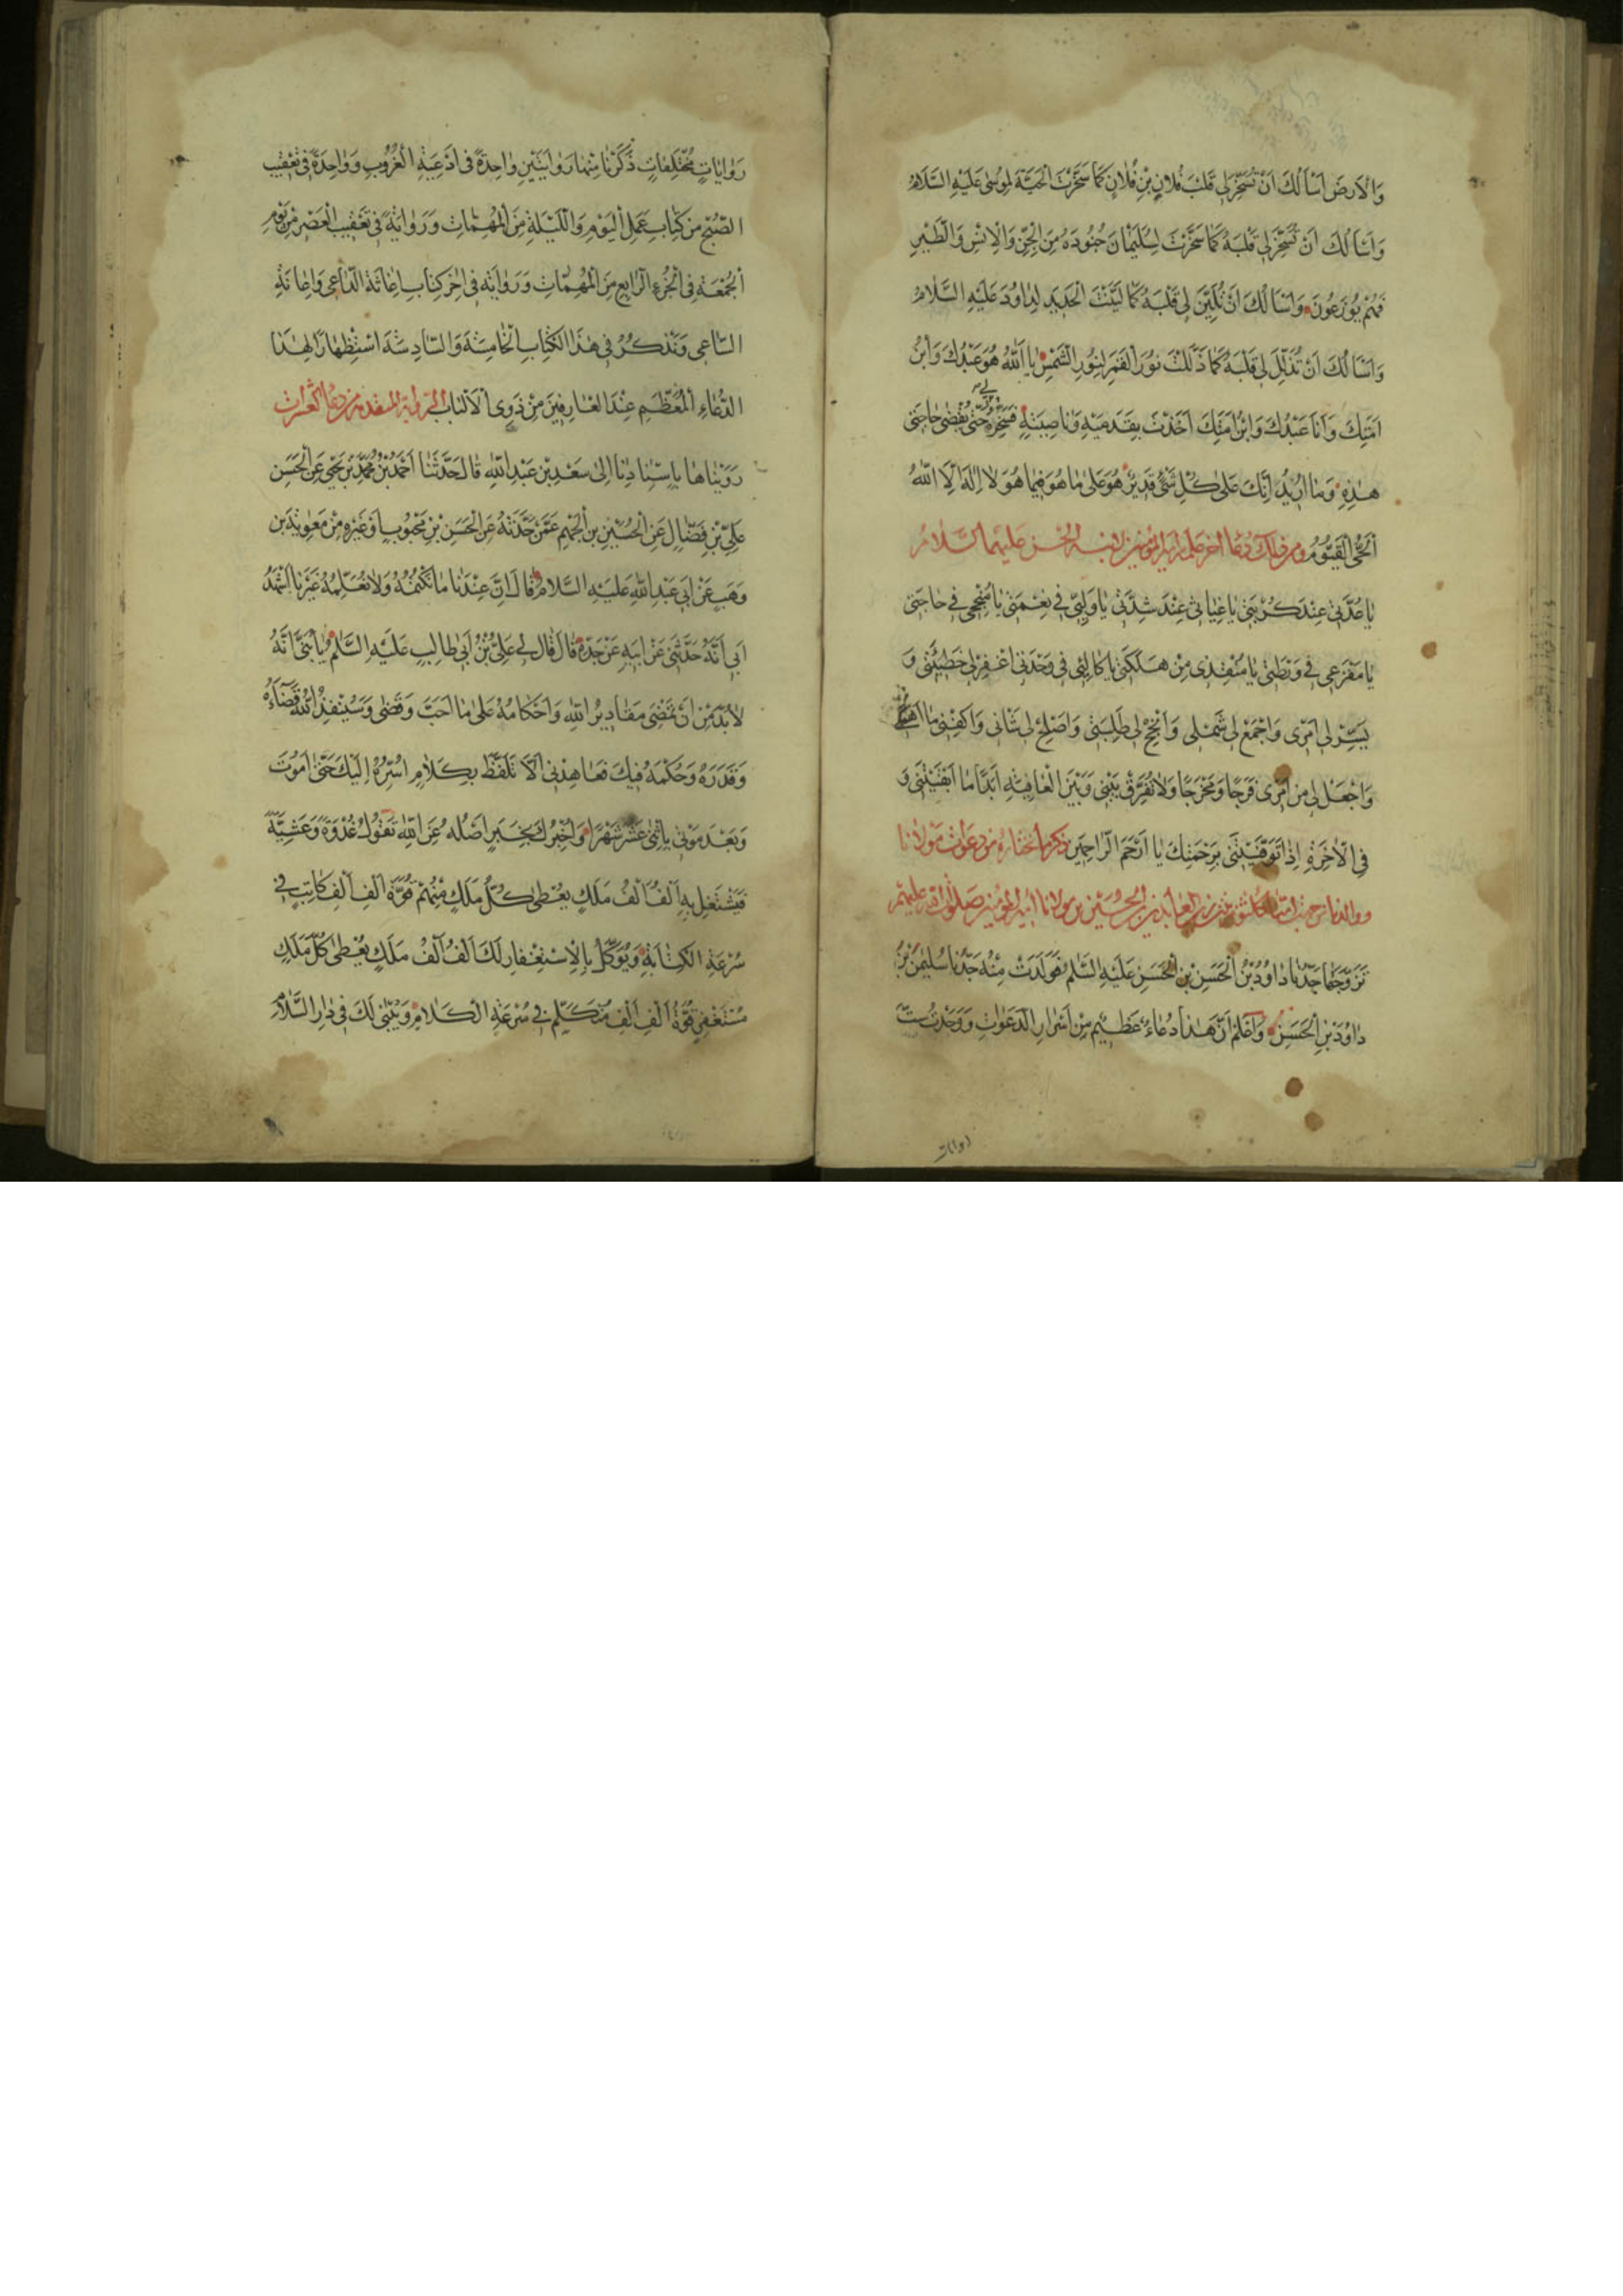 وَالْاَرضَ اَسْاَلُكَ اَنْ تُسَخِّرَ لِی قَلْبَ فُلانِ بْنِ فُلانٍ كَمَا سَخَّرْتَ الْحَيَّةَ لِمُوسٰى عَلَيْهِ السَّلامُ
وَاَسْاَلُكَ اَنْ تُسَخِّرَ لِی قَلْبَهُ كَمَا سَخَّرْتَ لِسُلَيْمٰانَ جُنُودَهُ مِنَ الْجِنِّ وَالْاِنْسِ وَالطَّيْرِ
فَهُمْ يُوزَعُونَ وَاَسْاَلُكَ اَنْ تُلَيِّنَ لِی قَلْبَهُ كَمَا لَيَّنْتَ الْحَدِيدَ لِدٰاوُدَ عَلَيْهِ السَّلامُ
وَاَسْاَلُكَ اَنْ تُذَلِّلَ لِی قَلْبَهُ كَمَا ذَلَّلْتَ نُورَ الْقَمَرِ لِنُورِ الشَّمْسِ يٰا اَللّٰهُ هُوَ عَبْدُكَ وَابْنُ
اَمَتِكَ وَاَنَا عَبْدُكَ وَابْنُ اَمَتِكَ اَخَذْتَ بِقَدَمَيْهِ وَنٰاصِيَتِهِ فَسَخِّرْهُ لِی حَتّٰى يَقْضِیَ حٰاجَتِی
هٰذِهِ وَمٰا اُرِيدُ اِنَّكَ عَلٰى كُلِّ شَیْءٍ قَدِيرٌ هُوَ عَلٰى مٰا هُوَ فِيمٰا هُوَ لا اِلٰهَ اِلَّا اللّٰهُ
اَلْحَیُّ الْقَيُّومُ ومن ذلك دعاء اخر علمه امير المؤمنين لابنه الحسن عليهما السلام
يٰا عُدَّتِی عِنْدَ كُرْبَتِی يٰا غِيٰاثِی عِنْدَ شِدَّتِی يٰا وَلِيّی فِی نِعْمَتِی يٰا مُنْجِحِی فِی حٰاجَتِی
يٰا مَفْزَعِی فِی وَرْطَتِی يٰا مُنْقِذِی مِنْ هَلَكَتِی يٰا كٰالِئِی فِی وَحْدَتِی اغْفِرْ لِی خَطِيئَتِی وَ
يَسِّرْ لِی اَمْرِی وَاجْمَعْ لِی شَمْلِی وَاَنْجِحْ لِی طَلِبَتِی وَاَصْلِحْ لِی شَأْنِی وَاكْفِنِی مٰا اَهَمَّنِی
وَاجْعَلْ لِی مِنْ اَمْرِی فَرَجًا وَمَخْرَجًا وَلاتُفَرِّقْ بَيْنِی وَبَيْنَ الْعٰافِيَةِ اَبَدًا مٰا اَبْقَيْتَنِی وَ
فِی الْاٰخِرَةِ اِذٰا تَوَفَّيْتَنِی بِرَحْمَتِكَ يٰا اَرْحَمَ الرّٰاحِمِينَ ذكر ما نختاره من دعوات مولانا
ووالدنا من جهة امنا ام كلثوم بنت زين العابدين الحسين بن مولانا امير المؤمنين صلوات الله عليهم
تَزَوَّجَهٰا جَدُّنٰا دٰاوُدُ بْنُ الْحَسَنِ بْنِ الْحَسَنِ عَلَيْهِ السَّلٰمُ فَوَلَدَتْ مِنْهُ جَدَّنٰا سُلَيْمٰنَ بْنَ
دٰاوُدَ بْنِ الْحَسَنِ وَاعْلَمْ اَنَّ هٰذٰا دُعٰاءٌ عَظِيمٌ مِنْ اَسْرٰارِ الدَّعَوٰاتِ وَوَجَدْتُ سِتَّ
روايات
رَوٰايٰاتٍ مُخْتَلِفٰاتٍ ذَكَرْنٰا مِنْهٰا رَوٰايَتَيْنِ وٰاحِدَةً فِی اَدْعِيَةِ الْغُرُوبِ وَوٰاحِدَةً فِی تَعْقِيبِ
الصُّبْحِ مِنْ كِتٰابِ عَمَلِ الْيَوْمِ وَاللَّيْلَةِ مِنَ الْمُهِمّٰاتِ وَرَوٰايَةً فِی تَعْقِيبِ الْعَصْرِ مِنْ يَوْمِ
الْجُمْعَةِ فِی الْجُزْءِ الرّٰابِعِ مِنَ الْمُهِمّٰاتِ وَرَوٰايَةً فِی اٰخِرِ كِتٰابِ اِغٰاثَةِ الدّٰاعِی وَاِعٰانَةِ
السّٰاعِی وَنَذْكُرُ فِی هٰذَا الْكِتٰابِ الْخٰامِسَةَ وَالسّٰادِسَةَ اسْتِظْهٰارًا لِهٰذَا
الدُّعٰاءِ الْمُعَظَّمِ عِنْدَ الْعٰارِفِينَ مِنْ ذَوِی الْاَلْبٰابِ الرواية المتقدمة من دعاء العشرات
رَوَيْنٰاهٰا بِاِسْنٰادِنٰا اِلٰى سَعْدِ بْنِ عَبْدِ اللّٰهِ قٰالَ حَدَّثَنٰا اَحْمَدُ بْنُ مُحَمَّدِ بْنِ يَحْيٰى عَنِ الْحَسَنِ
عَلِیِّ بْنِ فَضّٰالٍ عَنِ الْحُسَيْنِ بْنِ الْجَهْمِ عَمَّنْ حَدَّثَهُ عَنِ الْحَسَنِ بْنِ مَحْبُوبٍ اَوْ غَيْرِهِ مِنْ مَعٰوِيَةَ بْنِ
وَهَبٍ عَنْ اَبِی عَبْدِ اللّٰهِ عَلَيْهِ السَّلامُ قٰالَ اِنَّ عِنْدَنٰا مٰا نَكْتُمُهُ وَلا نُعَلِّمُهُ غَيْرَنٰا اَشْهَدُ
اَبِی اَنَّهُ حَدَّثَنِی عَنْ اَبِيهِ عَنْ جَدِّهِ قٰالَ قٰالَ لِی عَلِیُّ بْنُ اَبِی طٰالِبٍ عَلَيْهِ السَّلٰمُ يٰا بُنَیَّ اِنَّهُ
لابُدَّ مِنْ اَنْ تَمْضِیَ مَقٰادِيرُ اللّٰهِ وَاَحْكٰامُهُ عَلٰى مٰا اَحَبَّ وَقَضٰى وَسَيُنْفِذُ اللّٰهُ قَضٰاءَهُ
وَقَدَرَهُ وَحُكْمَهُ فِيكَ فَعٰاهِدْنِی اَلّا تَلَفَّظَ بِكَلامٍ اُسِرُّهُ اِلَيْكَ حَتّٰى اَمُوتَ
وَبَعْدَ مَوْتِی بِاِثْنٰى عَشَرَ شَهْرًا وَاُخْبِرُكَ بِخَبَرٍ اَصْلُهُ عَنِ اللّٰهِ تَقُولُ غُدْوَةً وَعَشِيَّةً
فَيَشْتَغِلُ بِهِ اَلْفُ اَلْفِ مَلَكٍ يُعْطٰى كُلُّ مَلَكٍ مِنْهُمْ قُوَّةَ اَلْفِ اَلْفِ كٰاتِبٍ فِی
سُرْعَةِ الْكِتٰابَةِ وَيُوَكَّلُ بِالْاِسْتِغْفٰارِ لَكَ اَلْفُ اَلْفِ مَلَكٍ يُعْطٰى كُلُّ مَلَكٍ
مُسْتَغْفِرٍ قُوَّةَ اَلْفِ اَلْفِ مُتَكَلِّمٍ فِی سُرْعَةِ الْكَلامِ وَيُبْنٰى لَكَ فِی دٰارِ السَّلامِ